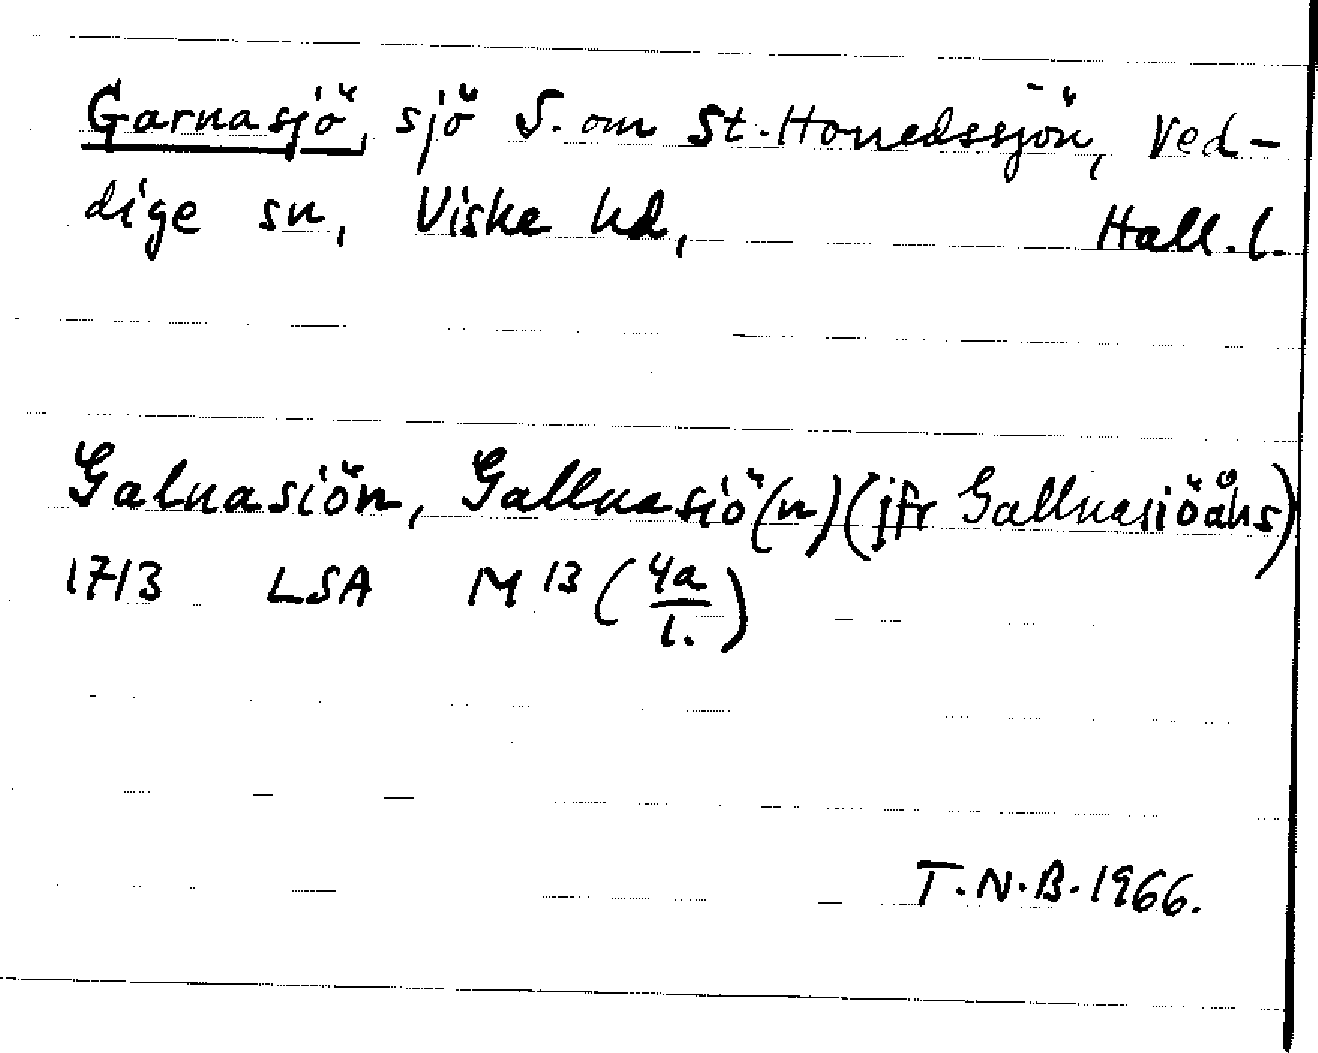 Garnasjö, sjö S. om St. Honedssjön, Ved-
dige sn, Viske hd, Hall. l.
Galnasiön, Gallnasiö(n) (jfr Gallnasiöåhs)
1713 LSA M 13 (4a/1.)
T.N.B. 1966.